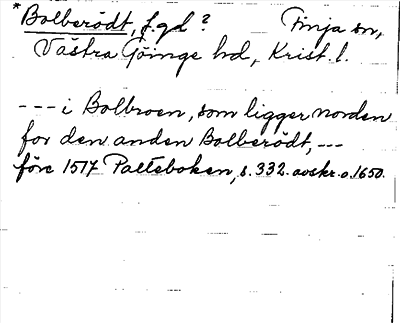 *Bolberödt, f.gd? Finja sn,
Västra Göinge hd, Krist. l.
--- i Bolbroen, som ligger norden
for den anden Bolberödt, ---
före 1517 Palteboken, s. 332. avskr. o. 1650.